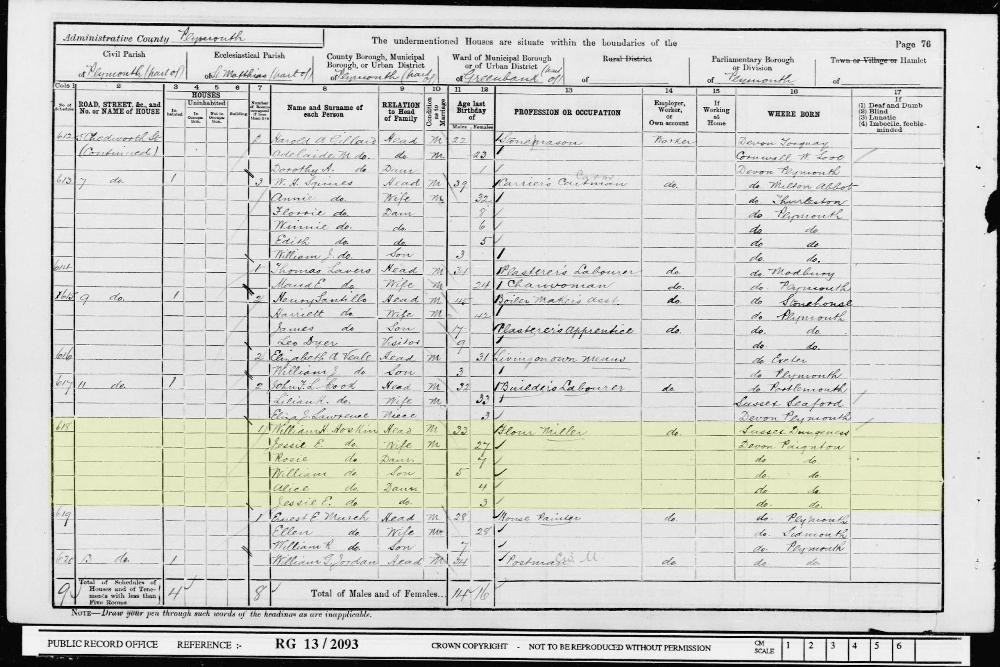 Administrative County Plymouth
The undermentioned Houses are situate within the boundaries of the
Page 76
Civil Parish
of Plymouth (part of)
Ecclesiastical Parish
of St Matthias (part of)
County Borough, Municipal Borough, or Urban District
of Plymouth (part of)
Ward of Municipal Borough or of Urban District
of Greenbank (part of)
Rural District
of
Parliamentary Borough or Division
of Plymouth
Town or Village or Hamlet
of
Cols 1 2 3 4 5 6 7 8 9 10 11 12 13 14 15 16 17
No. of Schedule
ROAD, STREET, &c., and No. or NAME of HOUSE
HOUSES
Inhabited
Uninhabited
In Occupation
Not in Occupation
Building
Name and Surname of each Person
RELATION to Head of Family
Condition as to Marriage
Age last Birthday of
Males Females
PROFESSION OR OCCUPATION
Employer, Worker, or Own account
If Working at Home
WHERE BORN
If
(1) Deaf and Dumb
(2) Blind
(3) Lunatic
(4) Imbecile, feeble-minded
612 5 Chedworth St 2 Harold A Gillard Head M 22 Stonemason Worker Devon Torquay
(Continued) Adelaide M do. do M 23 Cornwall W. Looe
Dorothy A. do Daur 1 Devon Plymouth
613 7 do. 1 3 W. H. Squires Head M 39 Carrier's Cartman do. do Milton Abbot
Annie do. Wife M 32 do Thurleston
Florrie do. Daur 8 do Plymouth
Winnie do. do 6 do do
Edith do. do. 5 do do.
William J. do. Son 3 do. do.
614 1 Thomas Lavers Head M 34 Plasterer's Labourer do. do Modbury
Maud E. do Wife M 24 Charwoman do. do Plymouth
615 9 do. 1 2 Henry Santillo Head M 45 Boiler Maker's Asst. do. do Stonehouse
Harriett do Wife M 42 do Plymouth
James do Son 17 Plasterer's Apprentice do. do. do.
Leo Dyer Visitor 9 do. do.
616 2 Elizabeth A Veale Head M 31 Living on own Means do Exeter
William J. do Son 3 do Plymouth
617 11 do. 1 2 Head M 32 Builder's Labourer do. do Portlemouth
Lilian R. do. Wife M 33 Sussex Seaford
Eliza J Lawrence Niece 3 Devon Plymouth
618 1 William H. Hoskin Head M 33 Flour Miller do. Sussex Dungeness
Jessie E. do. Wife M 27 Devon Paignton
Rosie do Daur. 7 do do.
William do Son 5 do do.
Alice do. Daur 4 do do.
Jessie E. do do. 3 do. do.
619 1 Ernest E Murch Head M 28 House Painter do. do. Plymouth
Ellen do Wife M 28 do. Sidmouth
William R do Son 7 do. Plymouth
620 13 do. 1 William T. Jordan Head M 34 Postman do. do do.
9 Total of Schedules of Houses and of Tenements with less than Five Rooms 4 8 Total of Males and of Females... 14 16
NOTE—Draw your pen through such words of the headings as are inapplicable.
PUBLIC RECORD OFFICE REFERENCE :- RG 13/2093 CROWN COPYRIGHT - NOT TO BE REPRODUCED WITHOUT PERMISSION CM SCALE 1 2 3 4 5 6